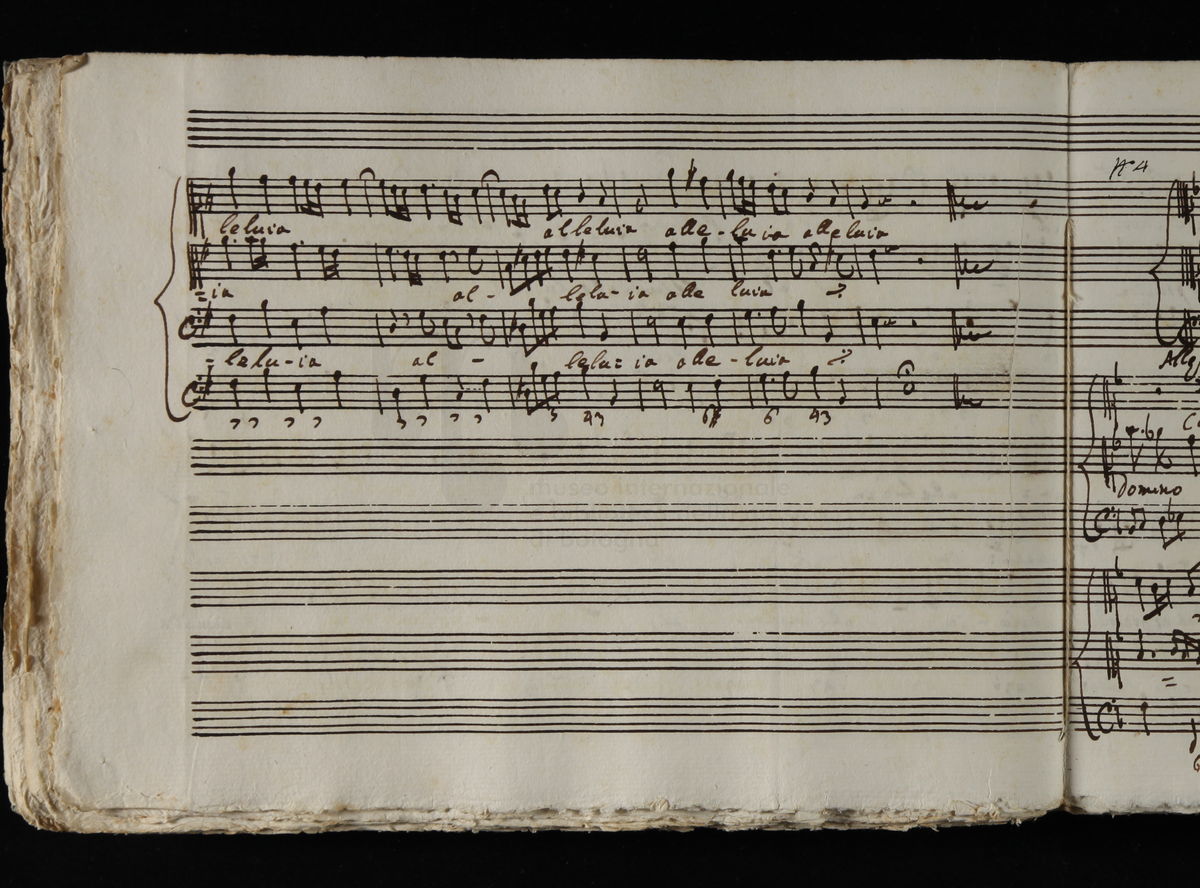 leluia alleluia alle-luia alleluia
=ia al- lelu-ia alle luia
=lelu-ia al - lelu=ia alle-luia
43 6 6 43
museo internazionale
di bologna
N° 4
Domino